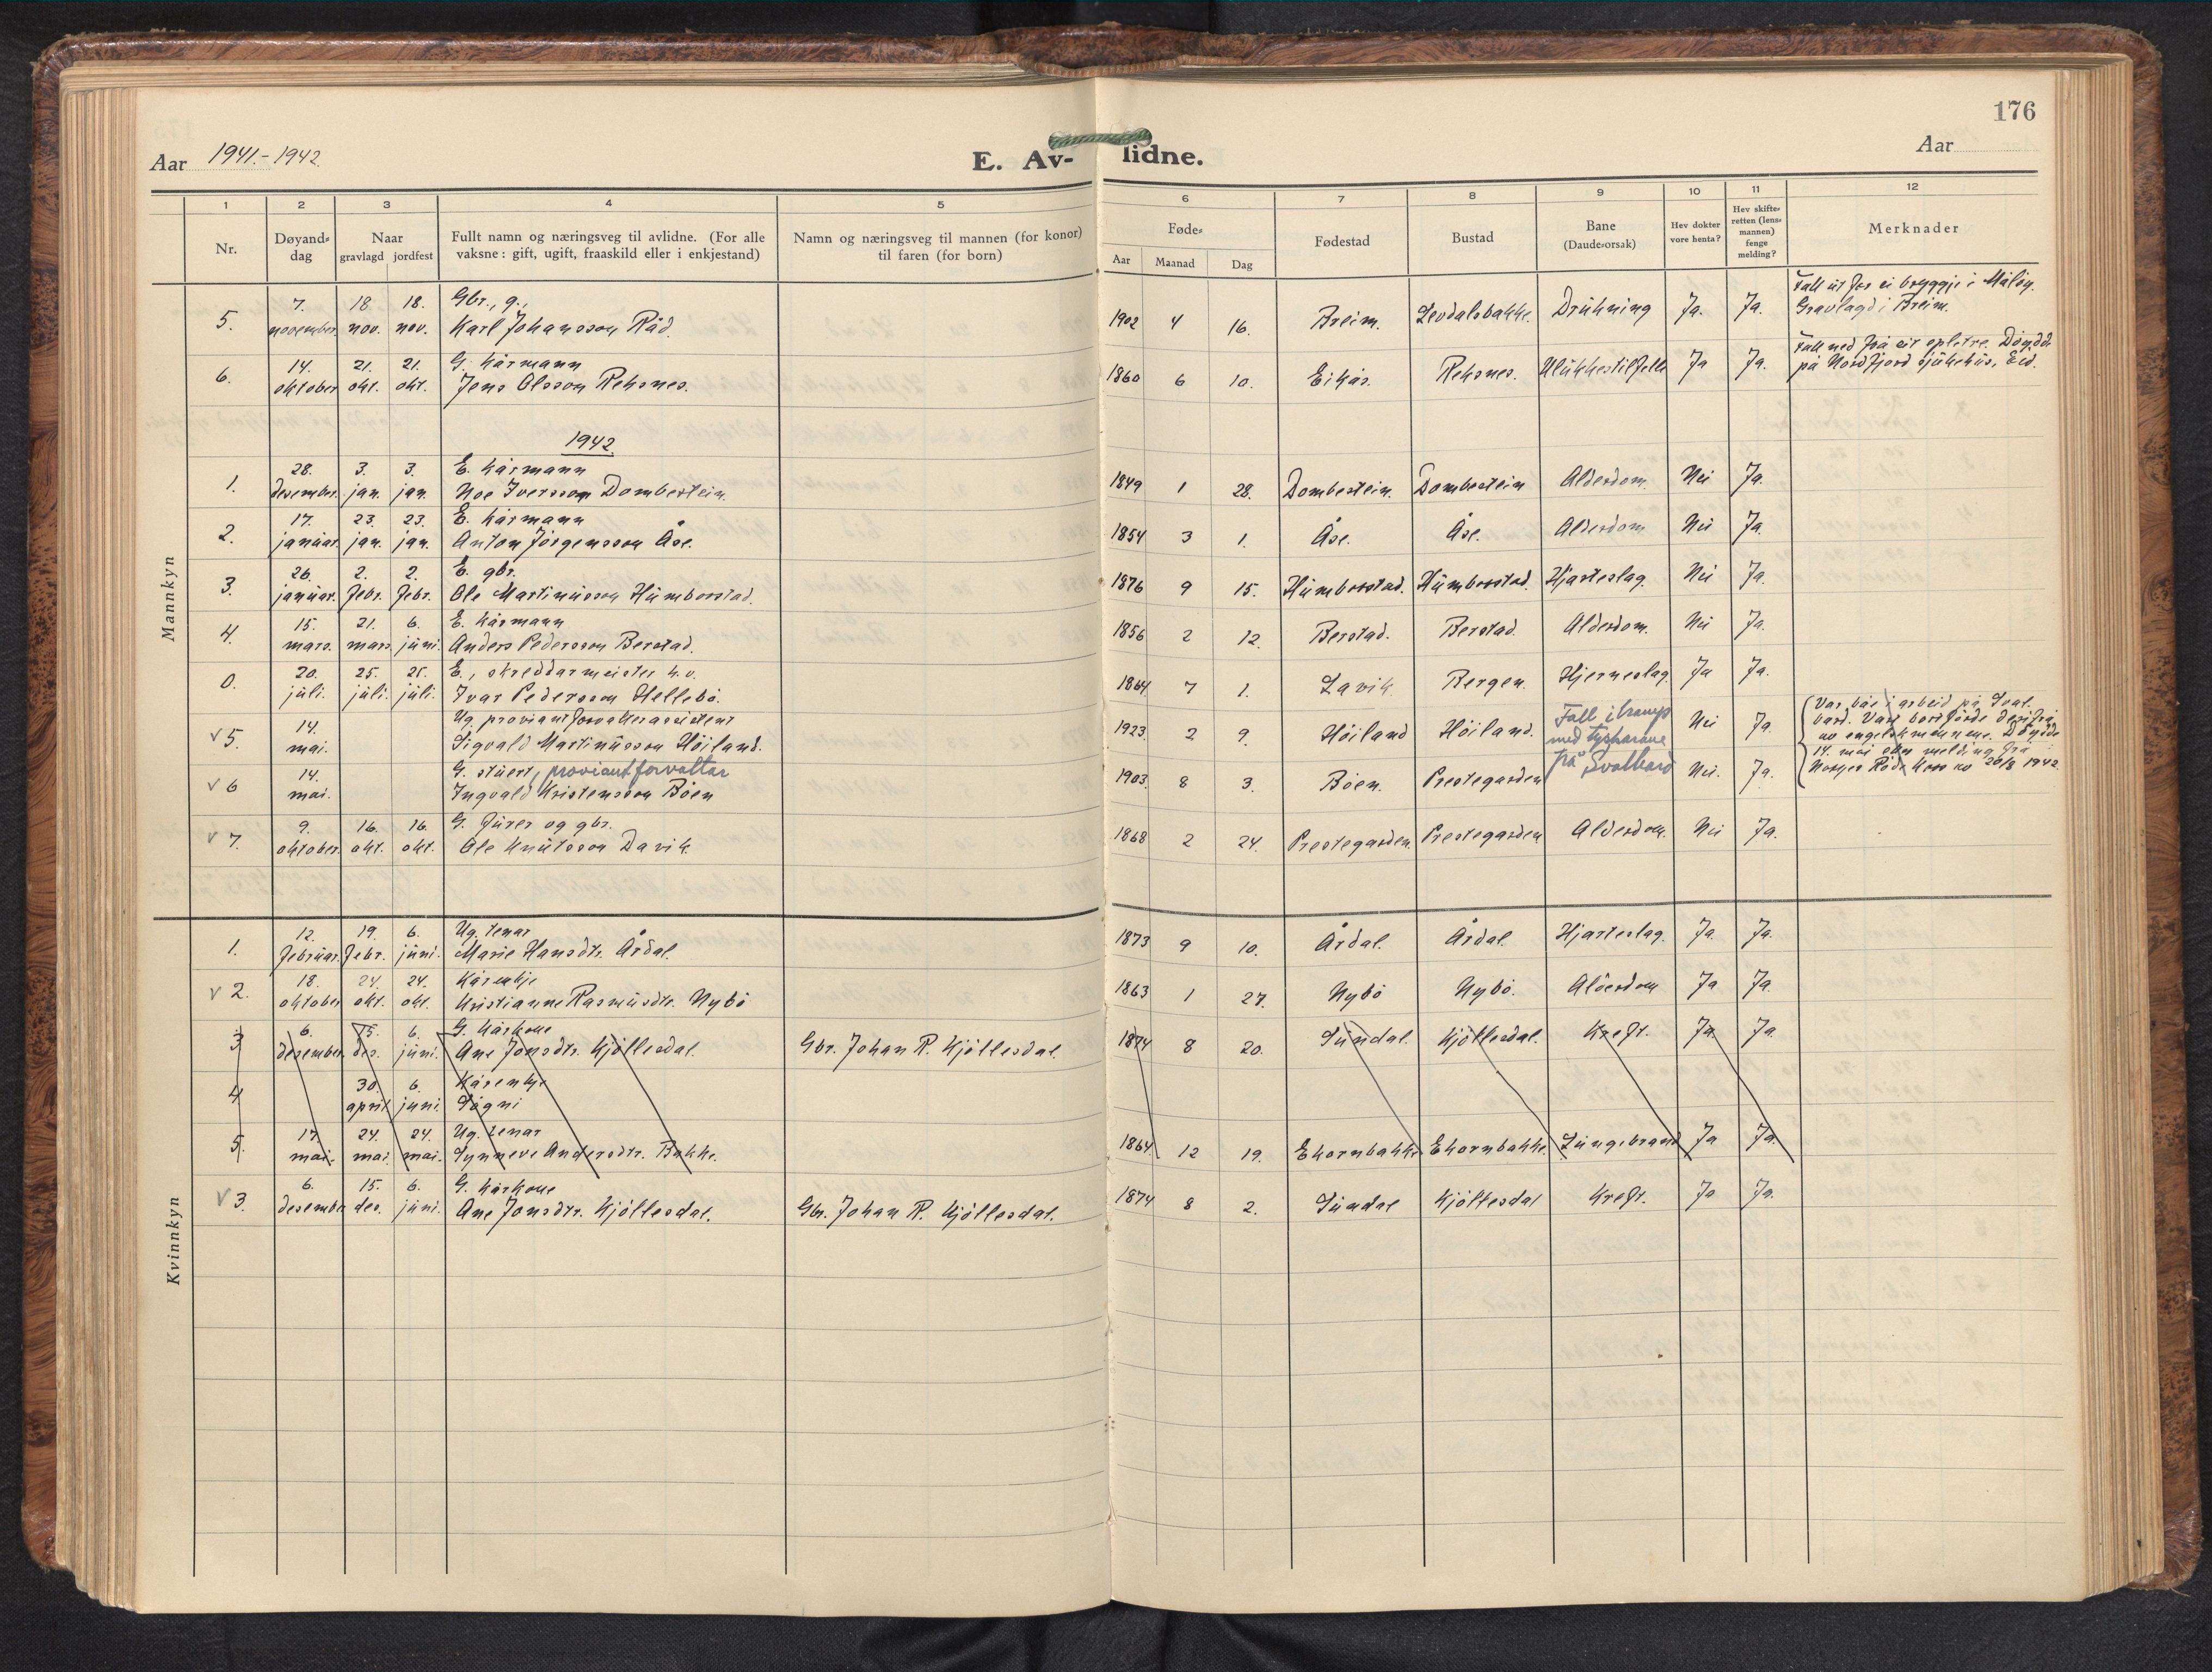 176
Aar 1941.-1942.
E. Av- lidne.
Aar
1 2 3 4 5 6 7 8 9 10 11 12
Nr.
Døyand-
dag
Naar
gravlagd jordfest
Fullt namn og næringsveg til avlidne. (For alle
vaksne: gift, ugift, fraaskild eller i enkjestand)
Namn og næringsveg til mannen (for konor)
til faren (for born)
Føde-
Aar Maanad Dag
Fødestad
Bustad
Bane
(Daude-orsak)
Hev dokter
vore henta?
Hev skifte-
retten (lens-
mannen)
fenge
melding?
Merknader
Mannkyn
7. 18. 18. Gbr., g., Fall ut for ei bryggje i Måløy.
5. november. nov. nov. Karl Johansson Råd. 1902 4 16. Breim. Levdalsbakke. Drukning Ja. Ja. Gravlagd i Breim.
14. 21. 21. G. kårmann Fall ned frå eit epletre. Döydde
6. oktober okt. okt. Jens Olsson Reksnes. 1860 6 10. Eikås. Reksnes. Ulukkestilfelle Ja Ja. på Nordfjord sjukehus, Eid.
1942.
28. 3. 3. E. kårmann
1. desember. jan. jan. Noe Iversson Dombestein. 1849 1 28. Dombestein. Dombestein Alderdom. Nei Ja.
17. 23. 23. E. kårmann
2. januar. jan. jan. Anton Jörgensson Åse. 1854 3 1. Åse. Åse. Alderdom Nei Ja
26. 2. 2. E. gbr.
3. januar. febr. febr. Ole Martinusson Humborstad. 1876 9 15. Humborstad. Humborstad. Hjarteslag. Nei Ja.
15. 21. 6. E. kårmann
4. mars. mars juni. Anders Pedersson Berstad. 1856 2 12. Berstad. Berstad. Alderdom. Nei Ja.
20. 25. 25. E., skreddarmeister h.v.
0. juli. juli. juli. Ivar Pedersson Hellebö. 1864 7 1. Lavik. Bergen. Hjerneslag. Ja Ja.
14. Ug. proviantforvalterassistent
v 5. mai. Sigvald Martinusson Höiland. 1923 2 9. Höiland Höiland. Fall i kamp
med tyskarane
på Svalbard Nei Ja.
Var båe i arbeid på Sval-
bard. Vart bortförde derifrå
av engelskmennene. Döydde
14. mai etter melding frå
Norges Röde Kors av 26/8 1942.
14. G. stuert, proviantforvaltar
v 6 mai. Ingvald Kristensson Böen 1903 8 3. Böen. Prestegarden Nei. Ja.
9. 16. 16. G. furer og gbr.
v 7. oktober. okt. okt. Ole Knutsson Davik. 1868 2 24. Prestegarden. Prestegarden Alderdom. Nei Ja.
Kvinnkyn
12. 19. 6. Ug. tenar
1. februar. febr. juni. Marie Hansdtr. Årdal. 1873 9 10. Årdal. Årdal. Hjarteslag. Ja Ja.
18. 24. 24. Kårenkje
v 2. oktober okt. okt. Kristianne Rasmusdtr. Nybö 1863 1 27. Nybö Nybö. Alderdom Ja Ja.
6. 15. 6. G. kårkone
3 desember des. juni. Ane Jonsdtr. Kjöllesdal. Gbr. Johan R. Kjöllesdal. 1874 8 20. Sundal. Kjöllesdal. Kreft. Ja. Ja
30. 6. Kårenkje
4 april juni. Sögni
17. 24. 24. Ug. tenar
5. mai. mai. mai. Synneve Andersdtr. Bakke. 1864. 12 19. Ekornbakke Ekornbakke. Lungebrand Ja Ja.
6. 15. 6. G. kårkone
v 3. desember des. juni. Ane Jonsdtr. Kjöllesdal. Gbr. Johan R. Kjöllesdal. 1874 8 2. Sundal Kjöllesdal Kreft. Ja Ja.